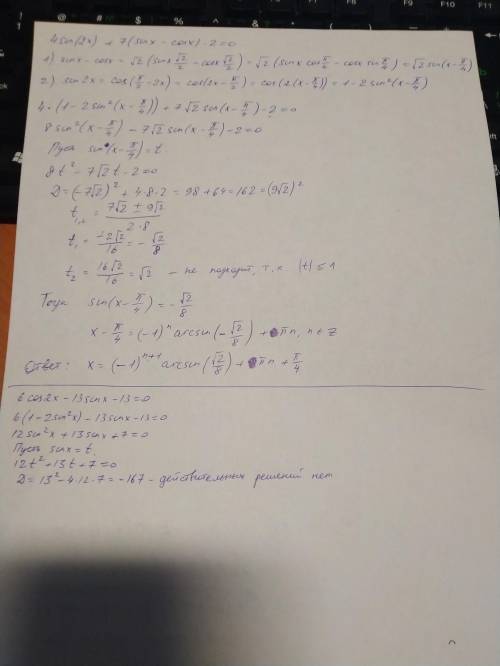 4sin(2x) + 7(sinx - cosx) - 2 = 0
1) sinx - cosx = √2 (sinx √2/2 - cosx √2/2) = √2 (sinx cos π/4 - cosx sin π/4) = √2 sin(x - π/4)
2) sin2x = cos(π/2 - 2x) = cos(2x - π/2) = cos(2(x - π/4)) = 1 - 2sin²(x - π/4)
4·(1 - 2sin²(x - π/4)) + 7√2 sin(x - π/4) - 2 = 0
8sin²(x - π/4) - 7√2 sin(x - π/4) - 2 = 0
Пусть sin(x - π/4) = t.
8t² - 7√2t - 2 = 0
D = (-7√2)² + 4·8·2 = 98 + 64 = 162 = (9√2)²
t₁,₂ = (7√2 ± 9√2)/(2·8)
t₁ = -2√2/16 = -√2/8
t₂ = 16√2/16 = √2 - не подходит, т.к |t| ≤ 1
Тогда sin(x - π/4) = -√2/8
x - π/4 = (-1)ⁿ arcsin(-√2/8) + πn, n ∈ Z
Ответ: x = (-1)ⁿ⁺¹ arcsin(√2/8) + πn + π/4
6cos2x - 13sinx - 13 = 0
6(1 - 2sin²x) - 13sinx - 13 = 0
12sin²x + 13sinx + 7 = 0
Пусть sinx = t.
12t² + 13t + 7 = 0
D = 13² - 4·12·7 = -167 - действительных решений нет